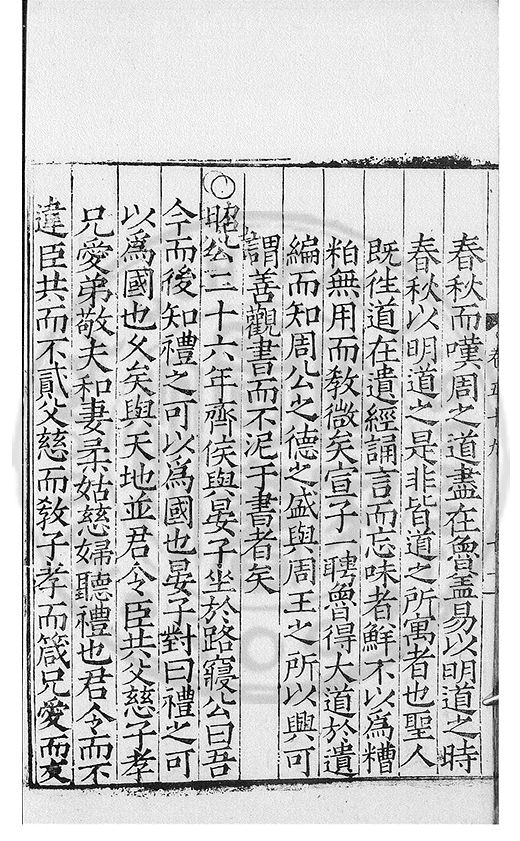 春秋而嘆周之道盡在魯盖易以明道之時
春秋以明道之是非皆道之所寓者也聖人
既徃道在遺經誦言而忘味者鮮不以爲糟
粕無用而教微矣宣子一聘魯得大道於遺
編而知周公之德之盛與周王之所以興可
謂善觀書而不泥于書者矣
昭公二十六年齊侯與晏子坐於路寢公曰吾
今而後知禮之可以爲國也晏子對曰禮之可
以爲國也久矣與天地並君令臣共父慈子孝
兄愛弟敬夫和妻柔姑慈婦聽禮也君令而不
違臣共而不貳父慈而教子孝而箴兄愛而友
卷五十九